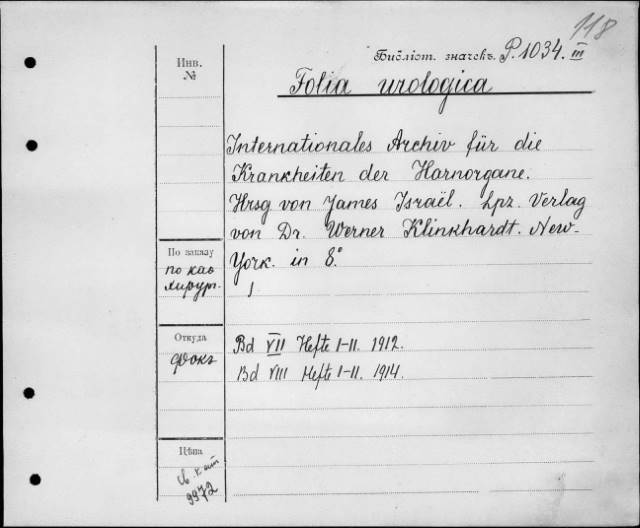 118
Инв. №
Библіот. значекъ. P. 1034. III
Folia urologica
Internationales Archiv für die
Krankheiten der Harnorgane.
Hrsg von James Israël. Lpz. Verlag
von Dr. Werner Klinkhardt. New-
York. in 8°
1
По заказу
по каѳ
хирург.
Откуда
Фокъ
Bd VII Hefte 1-11. 1912.
Bd VIII Hefte 1-11. 1914.
Цѣна
9972